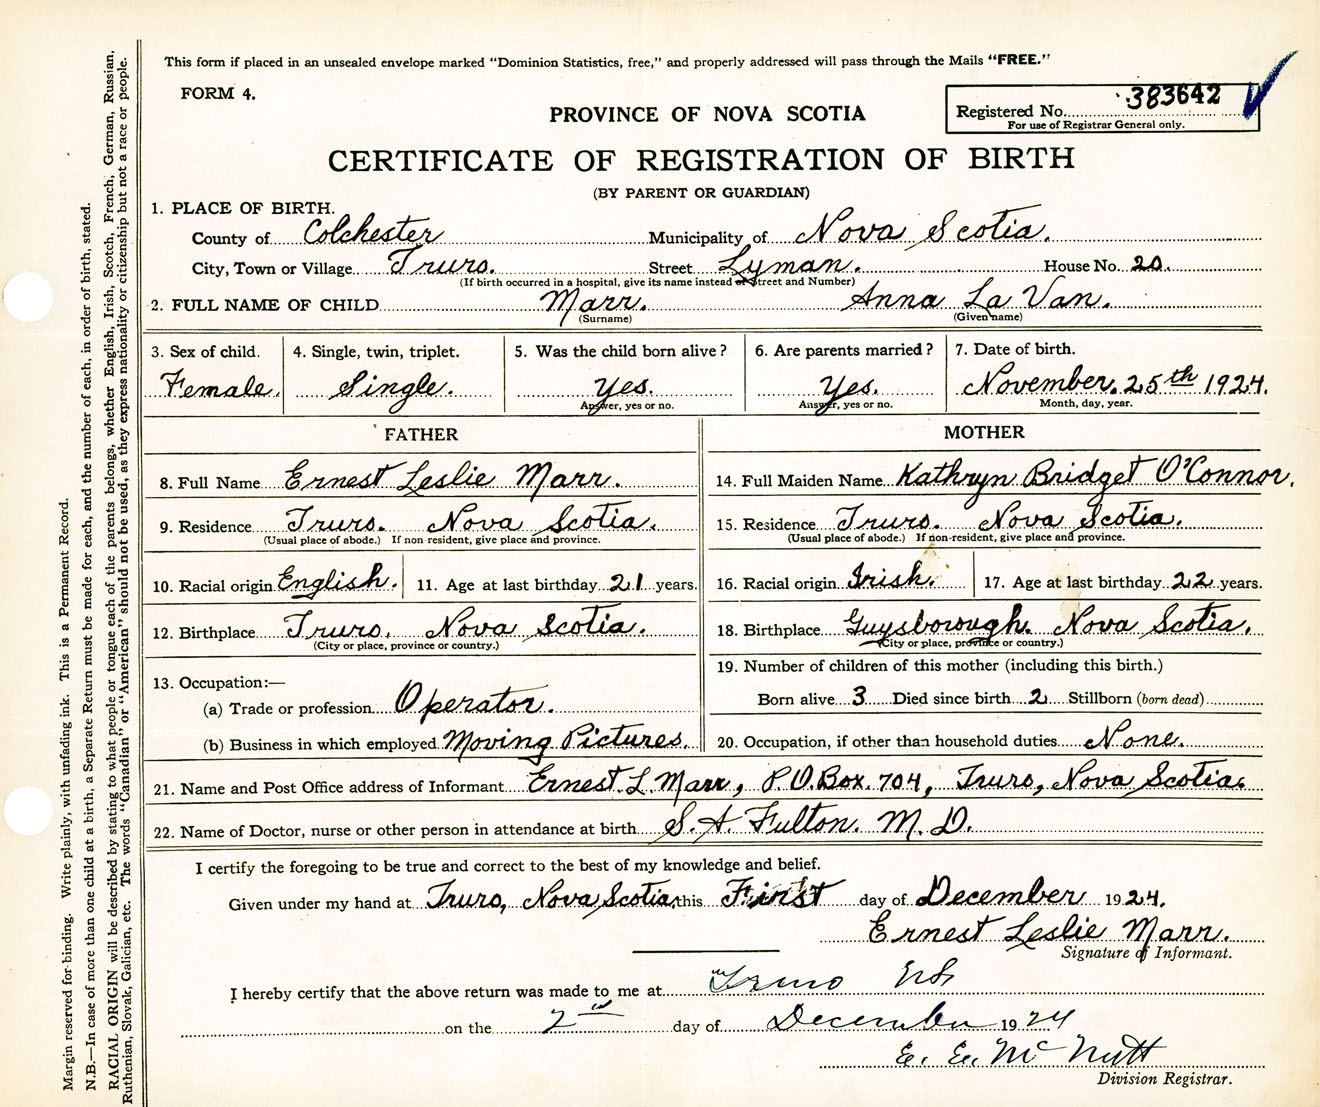 This form if placed in an unsealed envelope marked "Dominion Statistics, free," and properly addressed will pass through the Mails "FREE."
FORM 4.
PROVINCE OF NOVA SCOTIA
Registered No. 383642
For use of Registrar General only.
CERTIFICATE OF REGISTRATION OF BIRTH
(BY PARENT OR GUARDIAN)
1. PLACE OF BIRTH.
County of Colchester Municipality of Nova Scotia.
City, Town or Village Truro. Street Lyman. House No. 20.
(If birth occurred in a hospital, give its name instead of Street and Number)
2. FULL NAME OF CHILD Marr. Anna La Van.
(Surname) (Given name)
3. Sex of child. 4. Single, twin, triplet. 5. Was the child born alive? 6. Are parents married? 7. Date of birth.
Female. Single. Yes. Yes. November. 25th 1924.
Answer, yes or no. Answer, yes or no. Month, day, year.
FATHER MOTHER
8. Full Name Ernest Leslie Marr. 14. Full Maiden Name Kathryn Bridget O'Connor.
9. Residence Truro. Nova Scotia. 15. Residence Truro. Nova Scotia.
(Usual place of abode.) If non resident, give place and province. (Usual place of abode.) If non-resident, give place and province.
10. Racial origin English. 11. Age at last birthday 21 years. 16. Racial origin Irish. 17. Age at last birthday 22 years.
12. Birthplace Truro. Nova Scotia. 18. Birthplace Guysborough. Nova Scotia.
(City or place, province or country.) (City or place, province or country.)
13. Occupation:— 19. Number of children of this mother (including this birth.)
(a) Trade or profession Operator. Born alive 3 Died since birth 2 Stillborn (born dead)
(b) Business in which employed Moving Pictures. 20. Occupation, if other than household duties None.
21. Name and Post Office address of Informant Ernest. L. Marr, P.O. Box. 704, Truro, Nova Scotia.
22. Name of Doctor, nurse or other person in attendance at birth S. A. Fulton. M. D.
I certify the foregoing to be true and correct to the best of my knowledge and belief.
Given under my hand at Truro, Nova Scotia, this First day of December 1924.
Ernest Leslie Marr.
Signature of Informant.
I hereby certify that the above return was made to me at Truro NS
on the 2nd day of December 1924
E. E. McNutt
Division Registrar.
Margin reserved for binding. Write plainly, with unfading ink. This is a Permanent Record.
N.B.—In case of more than one child at a birth, a Separate Return must be made for each, and the number of each, in order of birth, stated.
RACIAL ORIGIN will be described by stating to what people or tongue each of the parents belongs, whether English, Irish, Scotch, French, German, Russian,
Ruthenian, Slovak, Galician, etc. The words "Canadian" or "American" should not be used, as they express nationality or citizenship but not a race or people.